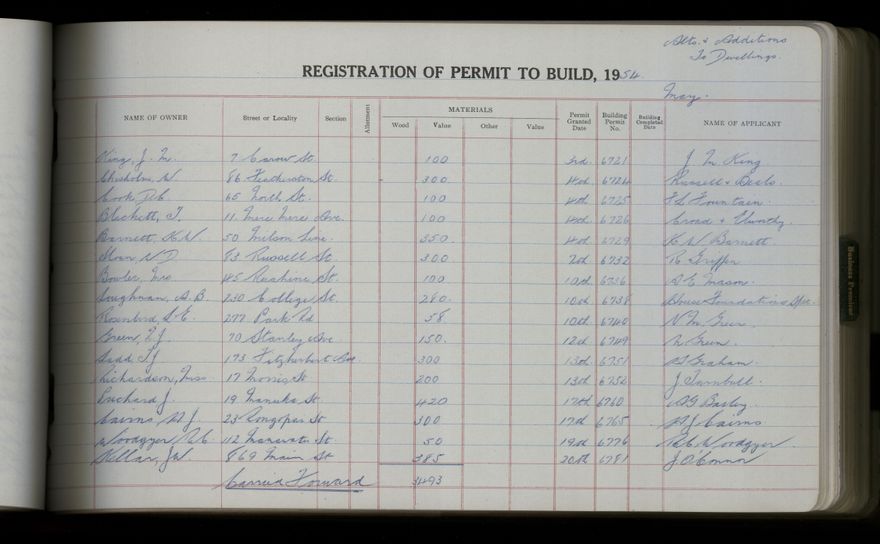 Alts. & Additions
To Dwellings.
REGISTRATION OF PERMIT TO BUILD, 1954.
May.
NAME OF OWNER Street or Locality Section Allotment MATERIALS Permit Granted Date Building Permit No. Building Completed Date NAME OF APPLICANT
Wood Value Other Value
King, J. M. 7 Carow St. 100 3rd. 6721 J M King
Chisholm, N. 86 Featherston St. 300 4th 6724 Russell &
Cook, D.C. 65 North St. 100 4th 6725 Fountain
Blackett, T. 11 Mere Mere Ave. 100 4th 6726 Croad &
Barnett, K.W. 50 Milson Line. 350. 4th 6729 K W Barnett
Sloan, N D 83 Russell St. 300 7th 6732 R. Griffin
Bowler, Mrs 45 Ruahine St. 100 10th 6736 Mason.
Loughnan, A.B. 230 College St. 280. 10th 6738 House Foundations Spec.
277 Park Rd 58 10th 6740 N. M. Greer
Green, 70 Stanley Ave 150. 12th 6749 R. Green.
Ladd, 173 Fitzherbert Ave 300 13th 6751 Graham.
Richardson, Miss 17 Morris St. 200 13th 6752 J Turnbull.
Puchard J. 19 Manuka St. 420 17th 6760
Cairns, M J. 23 Rongopai St 300 17th 6765 M J Cairns
Woodgyer, 112 Marawatu St. 50 19th 6776 Woodgyer
Kellar, J.W. 869 Main St 385 20th 6781 J. O'Connor
Carried Forward 3493
Business Premises